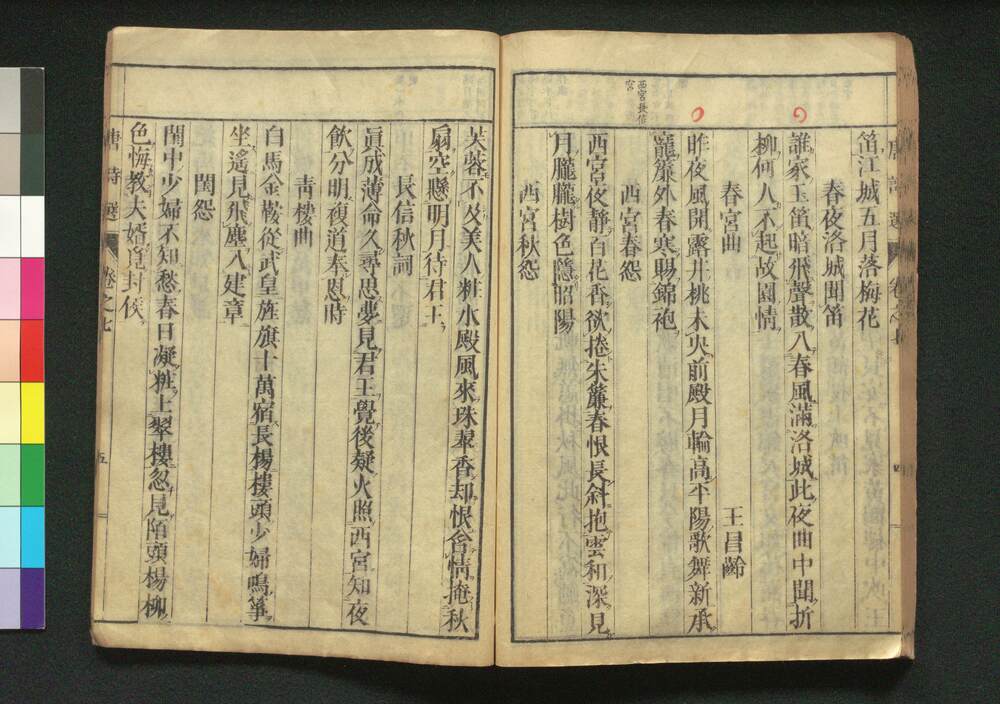 笛江城五月落梅花
春夜洛城聞笛
誰家玉笛暗飛聲散入春風滿洛城此夜曲中聞折
柳何人不起故園情
春宮曲
王昌齡
昨夜風開露井桃未央前殿月輪高平陽歌舞新承
寵簾外春寒賜錦袍
西宮春怨
西宮長信
宮
西宮夜靜百花香欲捲朱簾春恨長斜抱雲和深見
月朧朧樹色隱昭陽
西宮秋怨
唐詩選
卷之七
四
芙蓉不及美人粧水殿風來珠翠香却恨含情掩秋
扇空懸明月待君王
長信秋詞
眞成薄命久尋思夢見君王覺後疑火照西宮知夜
飮分明複道奉恩時
靑樓曲
白馬金鞍從武皇旌旗十萬宿長楊樓頭少婦鳴箏
坐遙見飛塵入建章
閨怨
閨中少婦不知愁春日凝粧上翠樓忽見陌頭楊柳
色悔敎夫婿覓封侯
唐詩選
卷之七
五